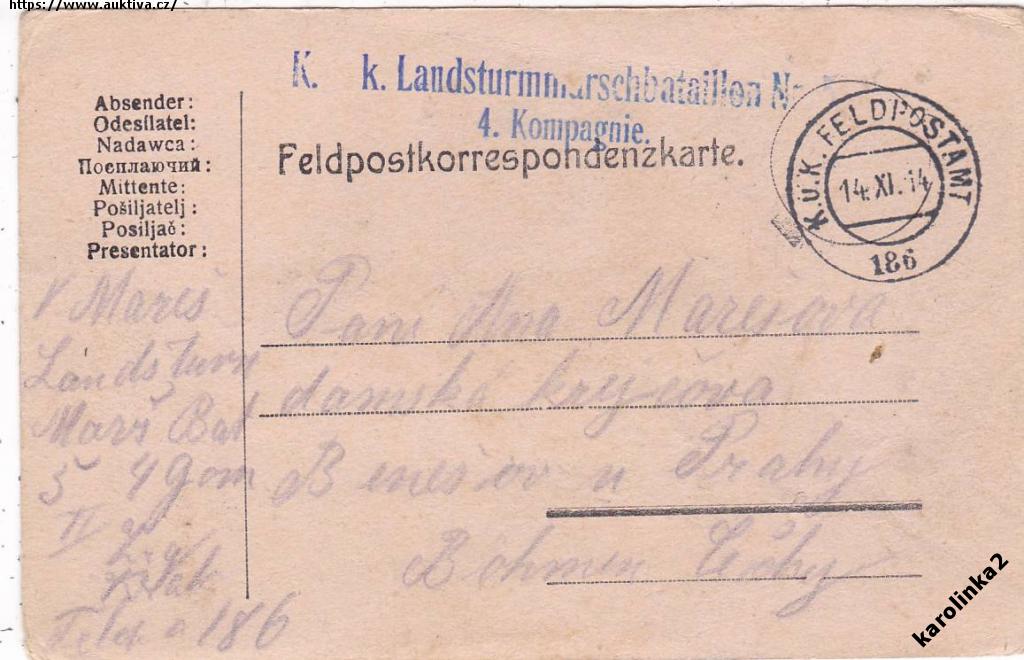 https://www.auktiva.cz/
K. k. Landsturmmarschbataillon No
4. Kompagnie.
Feldpostkorrespondenzkarte.
K.u.K. FELDPOSTAMT
14.XI.14
186
Absender:
Odesílatel:
Nadawca:
Посилаючий:
Mittente:
Pošiljatelj:
Posiljač:
Presentator:
V Mareš
Landsturm
Marš Bat
5 4 Gom
II
Feld 186
Paní Ana Marešová
damská krejčova
Benešov u Prahy
Böhmen Čechy
karolinka2